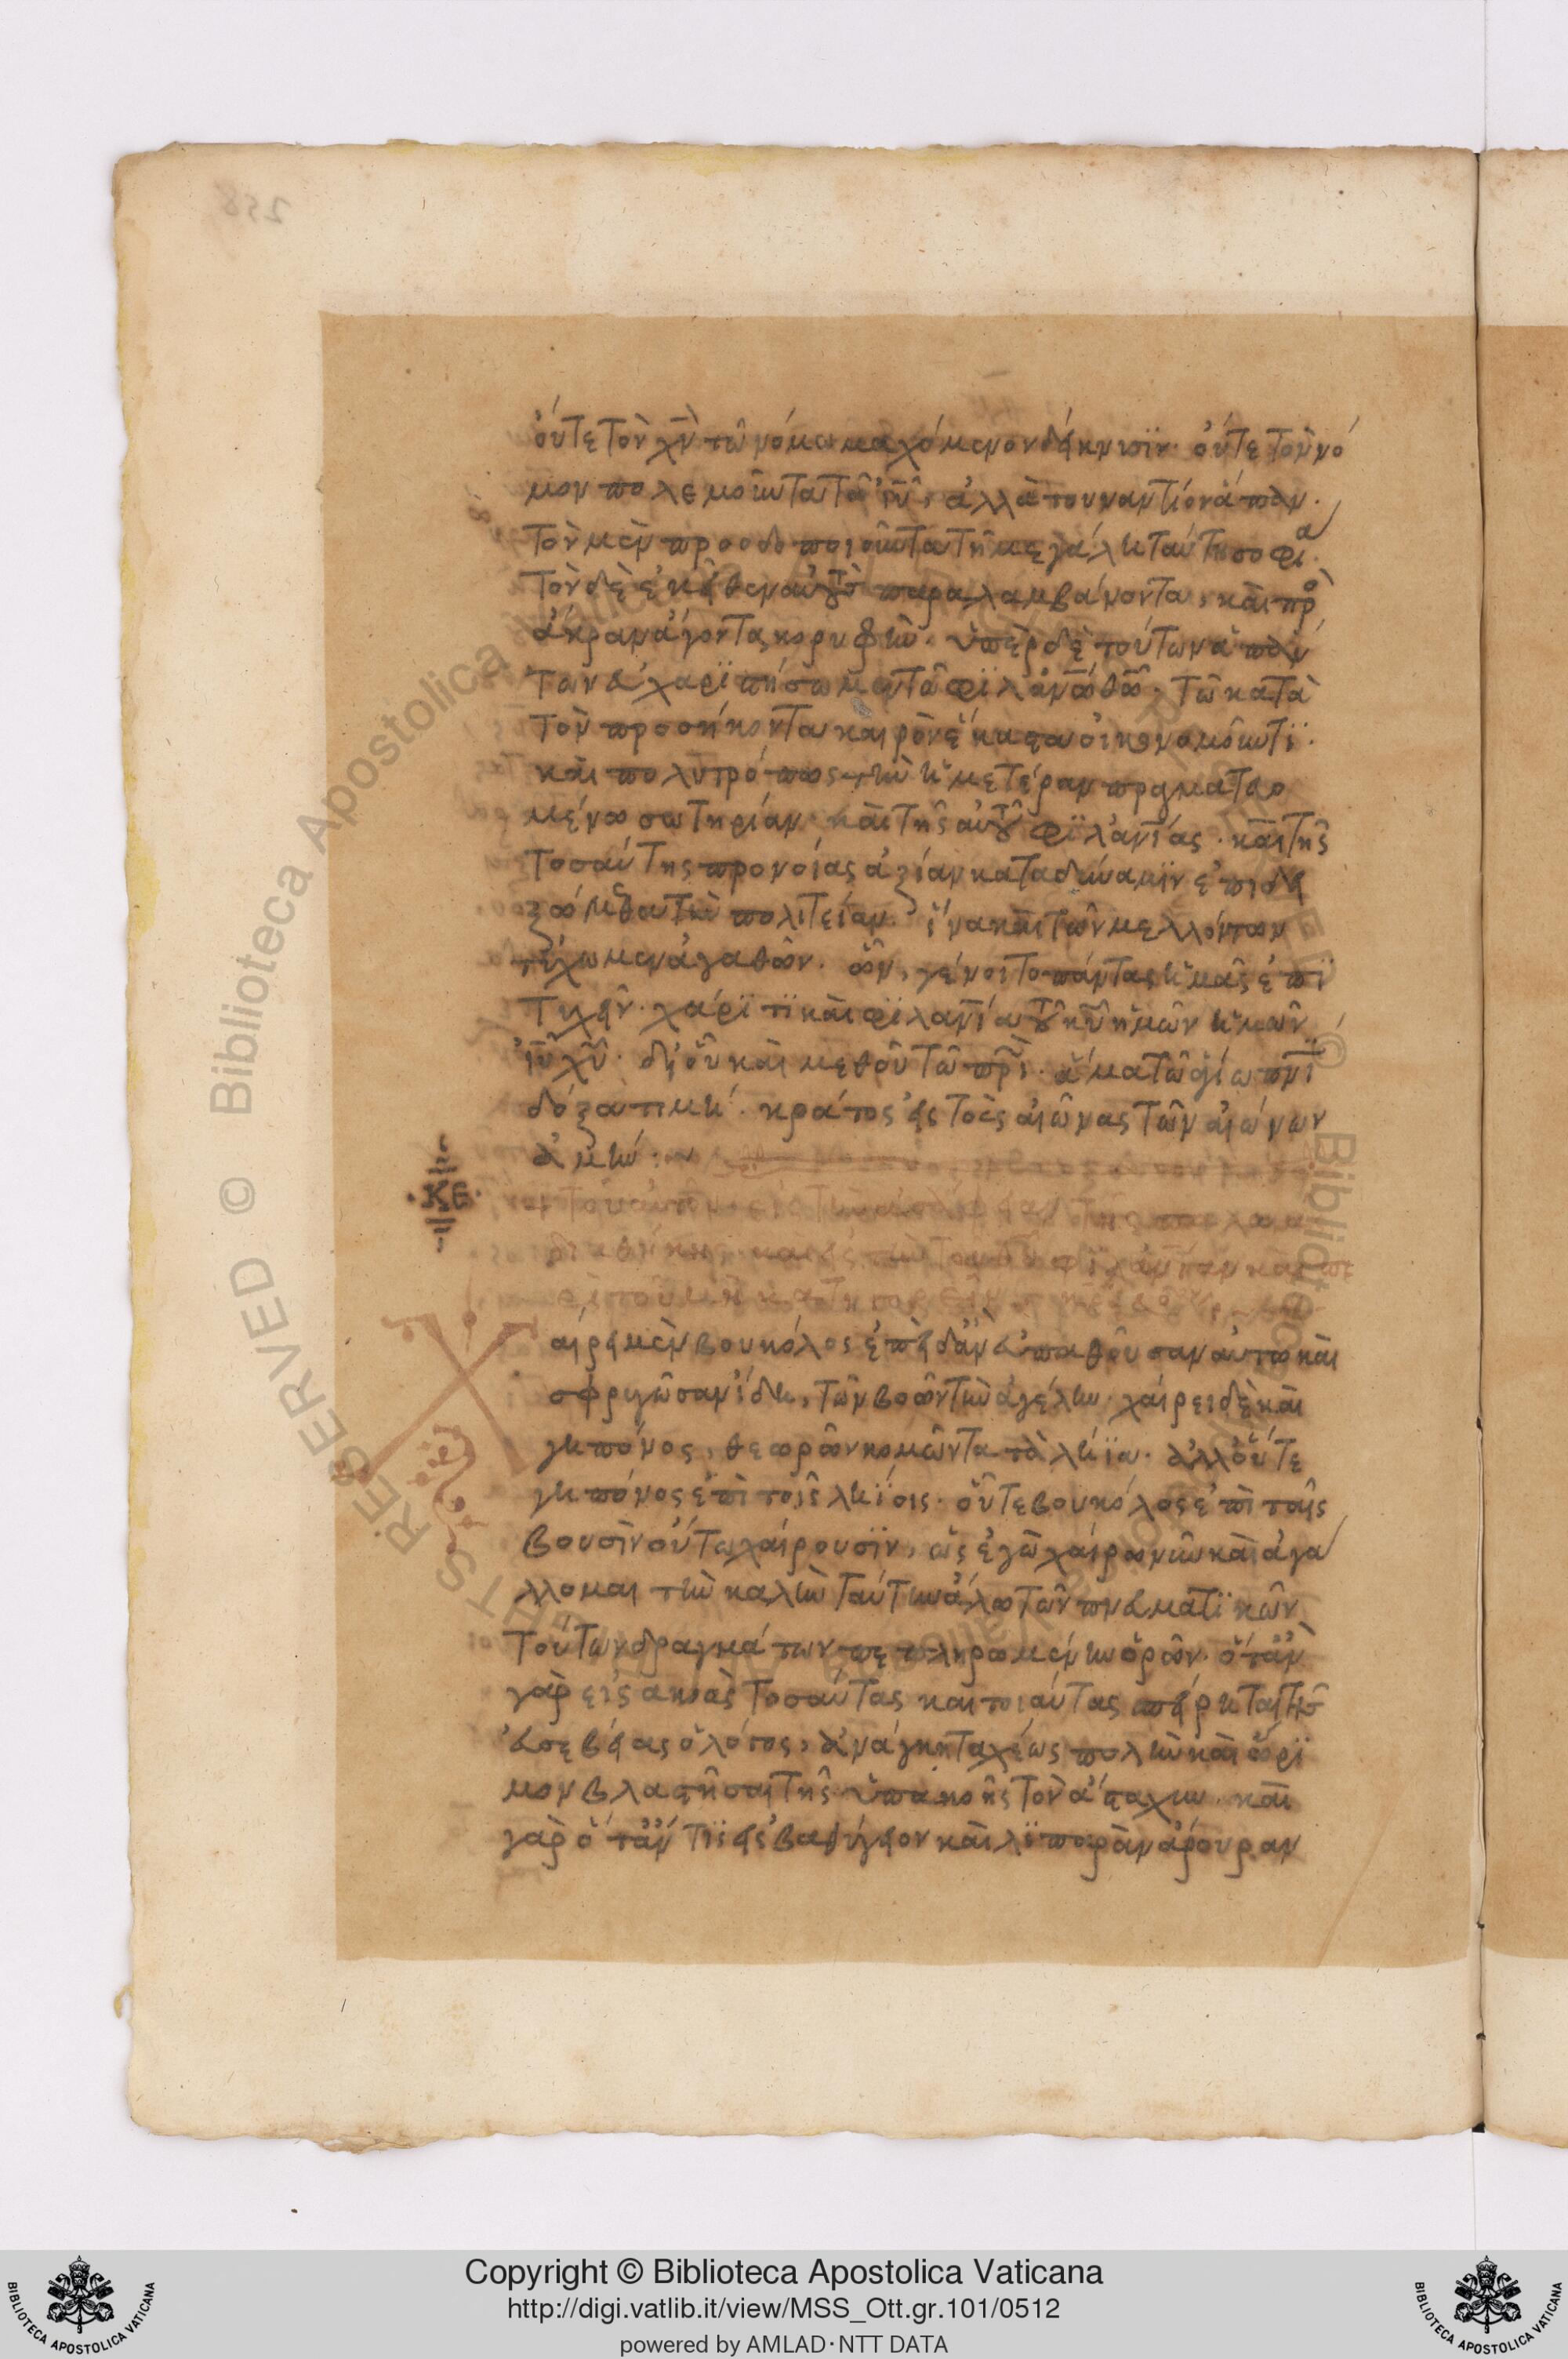 οὔτε τὸν χν τῶ νόμω μαχόμενον δείκνυσϊν· οὔτε τὸν νό
μον πολεμοῦντα τῶ ιυ, ἀλλὰ τουναντίον ἅπαν·
τὸν μὲν προοδοποιοῦντα τῆ μεγάλη ταύτη σοφία·
τὸν δὲ ἐκεῖθεν αὐτὸ παραλαμβάνοντα, καὶ πρὸ
ἄκραν ἄγοντα κορυφὴν· ὑπὲρ δὲ τούτων ἁπάν
των εὐχαρϊστήσωμεν τῶ φϊλανω θω· τῶ κατὰ
τὸν προσήκοντα καιρὸν ἕκαστα οἰκονομοῦντϊ·
καὶ πολυτρόπως τὴν ἡμετέραν πραγματευο
μένω σωτηρίαν· καὶ τῆς αὐτοῦ φϊλανίας· καὶ τῆς
τοσαύτης προνοίας ἀξίαν κατὰ δύναμϊν ἐπιδει
ξώμεθα τὴν πολιτείαν· ἵνα καὶ τῶν μελλόντων
τύχωμεν ἀγαθῶν· ὧν, γένοιτο πάντας ἡμᾶς ἐπϊ
τυχεῖν· χάρϊτϊ καὶ φϊλανία τοῦ κυ ἡμῶν
ιυ χυ· δι' οὗ καὶ μεθ' οὗ τῶ πρι· ἅμα τῶ ἁγίω πνϊ
δόξα τιμὴ· κράτος εἰς τοὺς αἰῶνας τῶν αἰώνων
ἀμήν:~
·ΚΕ·
αίρει μὲν βουκόλος ἐπειδὰν εὐπαθοῦσαν αὐτῶ καὶ
σφριγῶσαν ἴδη, τῶν βοῶν τὴν ἀγέλην· χαίρει δὲ καὶ
γηπόνος, θεωρῶν κομῶντα τὰ λήϊα· ἀλλ' οὔτε
γηπόνος ἐπὶ τοῖς ληΐοις· οὔτε βουκόλος ἐπὶ ταῖς
βουσὶν οὕτω χαίρουσϊν, ὡς ἐγὼ χαίρω νῦν καὶ ἀγά
λλομαι τὴν καλὴν ταύτην ἅλω τῶν πνευματϊκῶν
τούτων δραγμάτων πεπληρωμένην ὁρῶν· ὅταν
γὰρ εἰς ἀκοὰς τοσαύτας καὶ τοιαύτας σπείρηται τῆς
εὐσεβείας ὁ λόγος, ἀνάγκη ταχέως πολὺν καὶ ὥρϊ
μον βλαστῆσαι τῆς ὑπακοῆς τὸν ἄσταχυν· καὶ
γὰρ ὅταν τϊς εἰς βαθύγειον καὶ λϊπαρὰν ἄρουραν
Copyright © Biblioteca Apostolica Vaticana
http://digi.vatlib.it/view/MSS_Ott.gr.101/0512
powered by AMLAD·NTT DATA